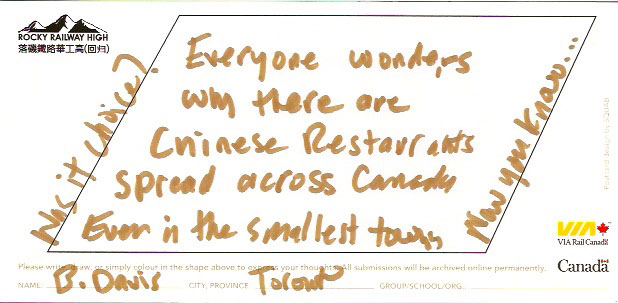 ROCKY RAILWAY HIGH
落磯鐵路華工高(回归)
Everyone wonders
why there are
Chinese Restaurants
spread across Canada
Even in the smallest towns
Was it choice?
Now you know...
Postcard design by SQUAB
VIA
VIA Rail Canada
Canada
Please write, draw, or simply colour in the shape above to express your thoughts. All submissions will be archived online permanently.
NAME: B. Davis CITY, PROVINCE Toronto GROUP/SCHOOL/ORG: